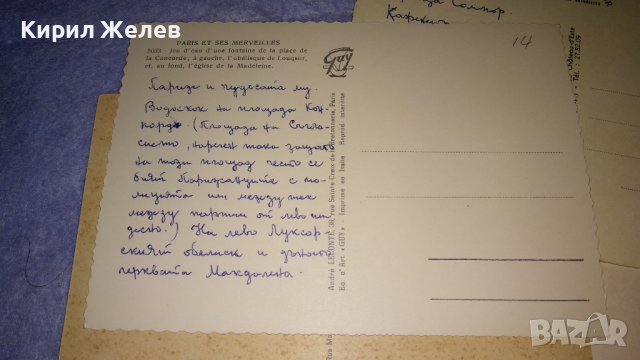 Кирил Желев
PARIS ET SES MERVEILLES
Jeu d'eau d'une fontaine de la place de
la Concorde; à gauche, l'obélisque de Louqsor,
et, au fond, l'église de la Madeleine.
GUY
14
Париж и чудесата му.
Водоскок на площада Кон-
корд. (Площада на Съгла-
сието, наречен така защото
на този площад често се
бият Парижаните с по-
лицията или между тях
между партии от лево и
десно.) На лево Луксор-
ския обелиск и дъното
черквата Мандалена.
André LECONTE, 38, rue Sainte-Croix-de-la-Bretonnerie, Paris
Ed. d'Art «GUY» Imprimé en Italie Reprod. interdite
Château-d'Eau
Tél. : 27.52.09
bazar.bg